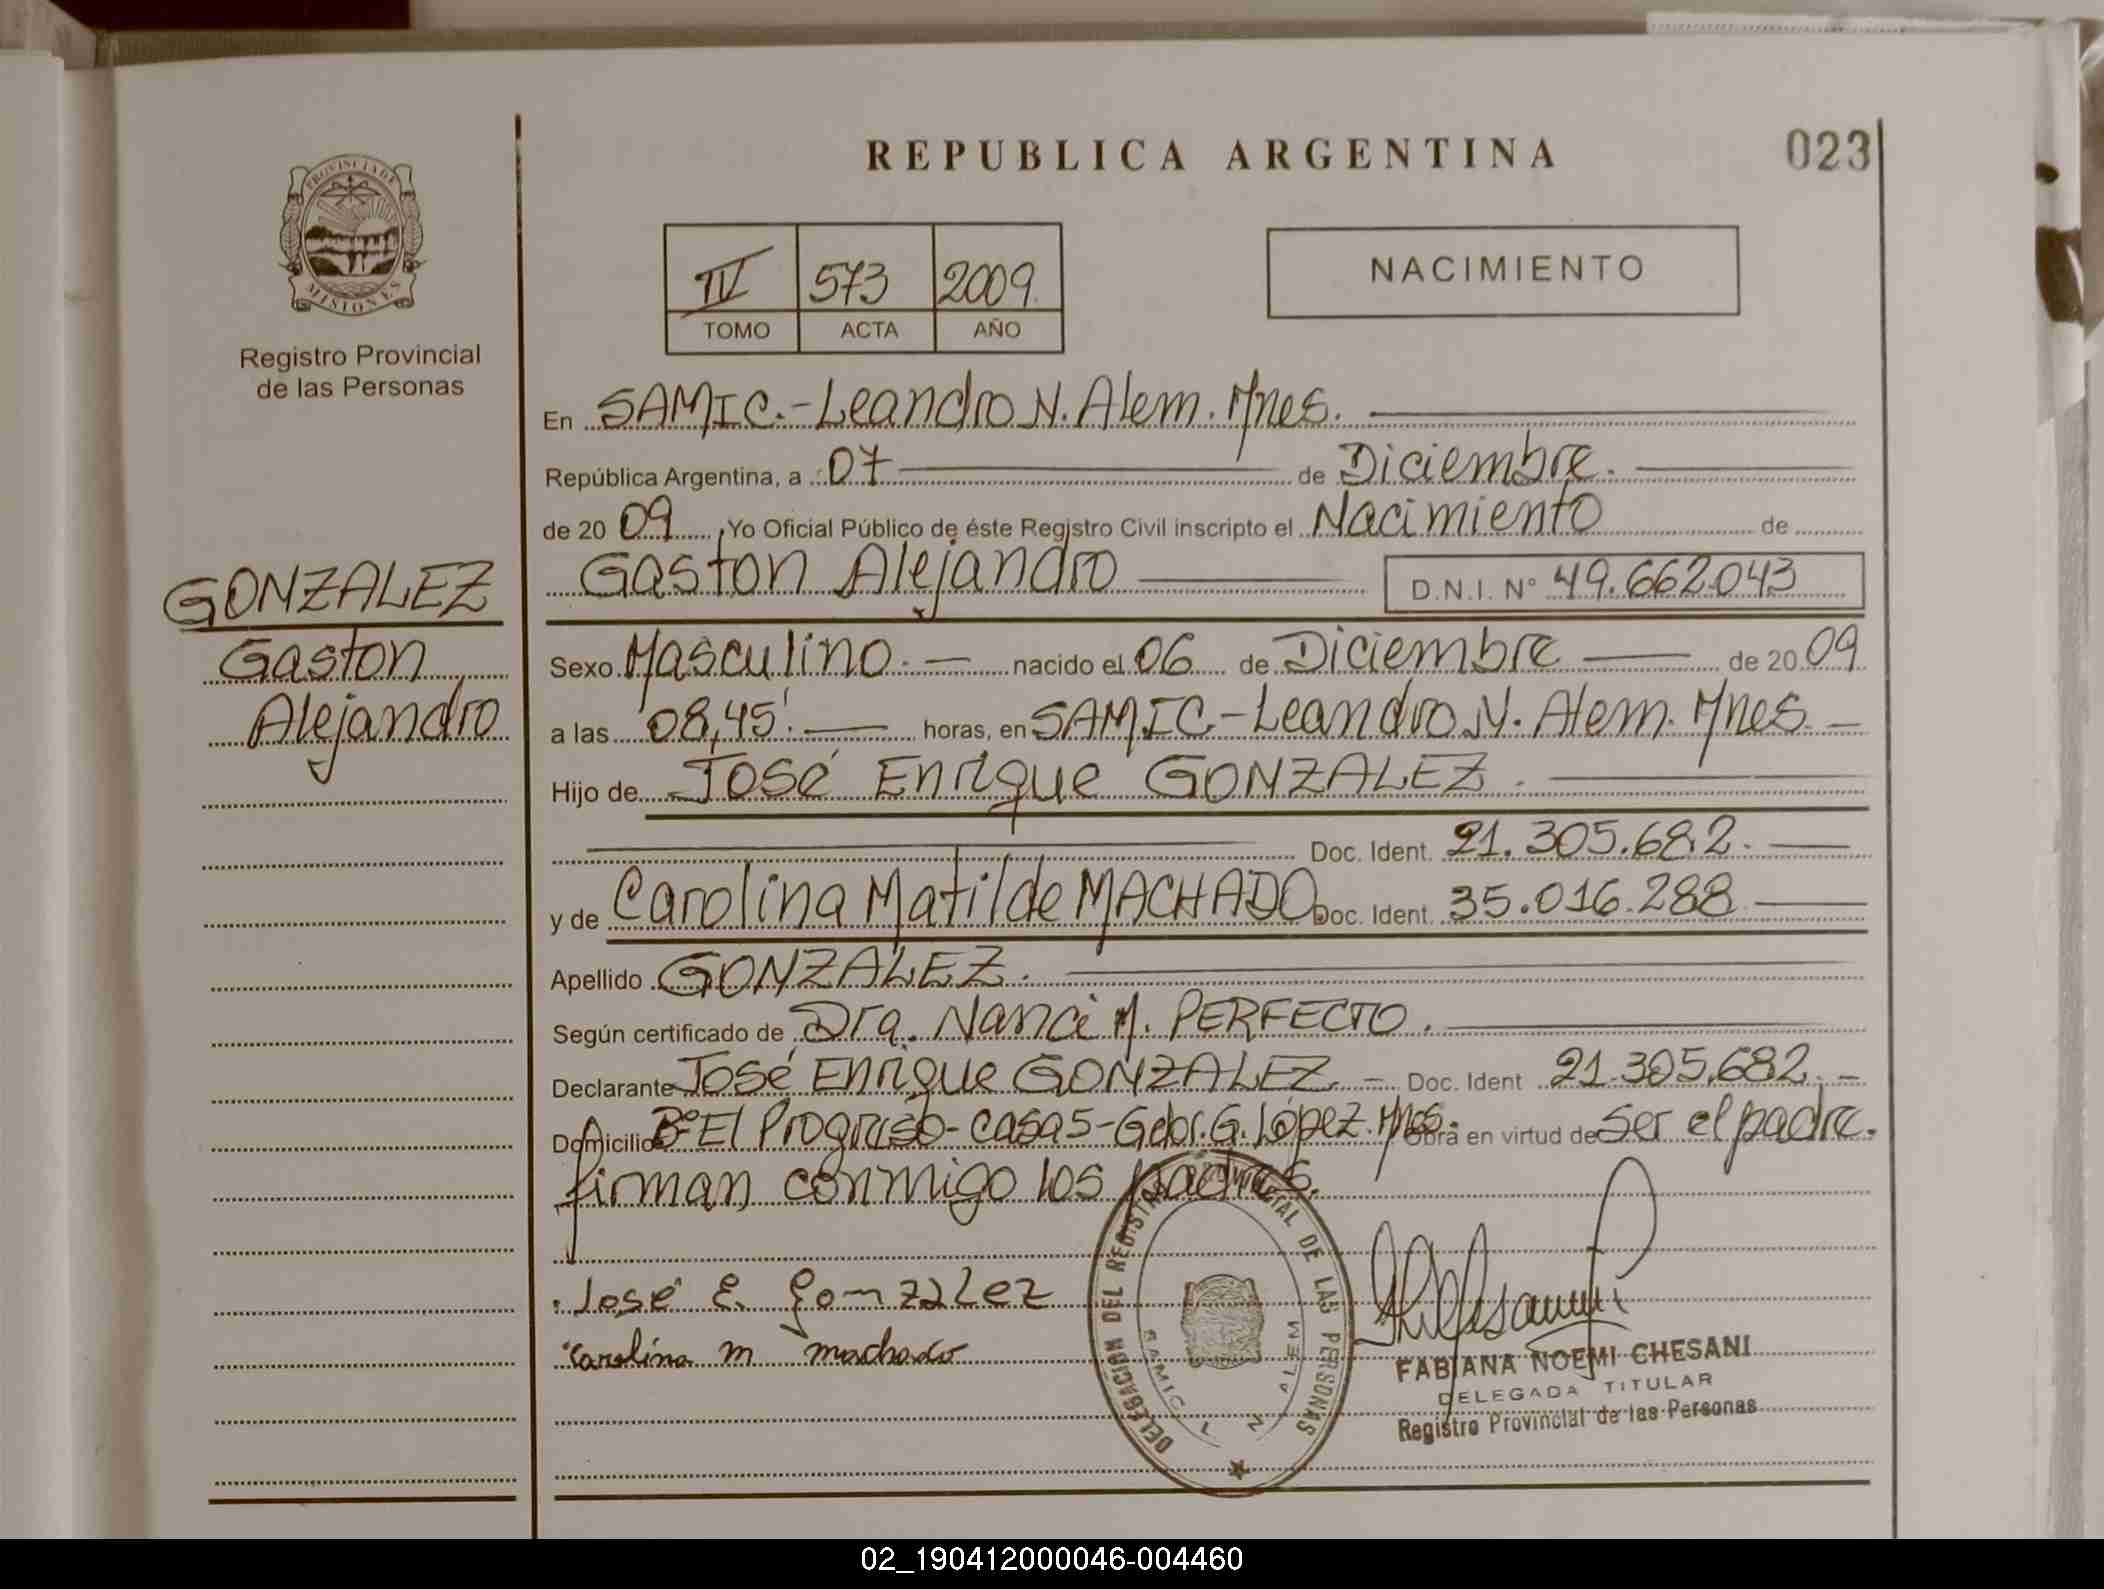 REPUBLICA ARGENTINA
023
PROVINCIA DE MISIONES
Registro Provincial
de las Personas
IV 573 2009
TOMO ACTA AÑO
NACIMIENTO
En SAMIC.-Leandro N. Alem. Mnes.
República Argentina, a 07 de Diciembre.
de 20 09, Yo Oficial Público de éste Registro Civil inscripto el Nacimiento de
Gaston Alejandro D.N.I. Nº 49.662.043
GONZALEZ
Gaston
Alejandro
Sexo Masculino. nacido el 06 de Diciembre de 20 09
a las 08,45'. horas, en SAMIC-Leandro N. Alem. Mnes.
Hijo de José Enrique GONZALEZ.
Doc. Ident. 21.305.682.
y de Carolina Matilde MACHADO Doc. Ident. 35.016.288
Apellido GONZALEZ.
Según certificado de Dra. Nanci M. PERFECTO.
Declarante José Enrique GONZALEZ Doc. Ident 21.305.682.
Domicilio Bº El Progreso-casa 5-Gdor. G. López. Mnes. Obra en virtud de ser el padre.
firman conmigo los padres.
José E. Gonzalez
Carolina M Machado
DELEGACION DEL REGISTRO PROVINCIAL DE LAS PERSONAS
SAMIC L N ALEM
FABIANA NOEMI CHESANI
DELEGADA TITULAR
Registro Provincial de las Personas
02_190412000046-004460